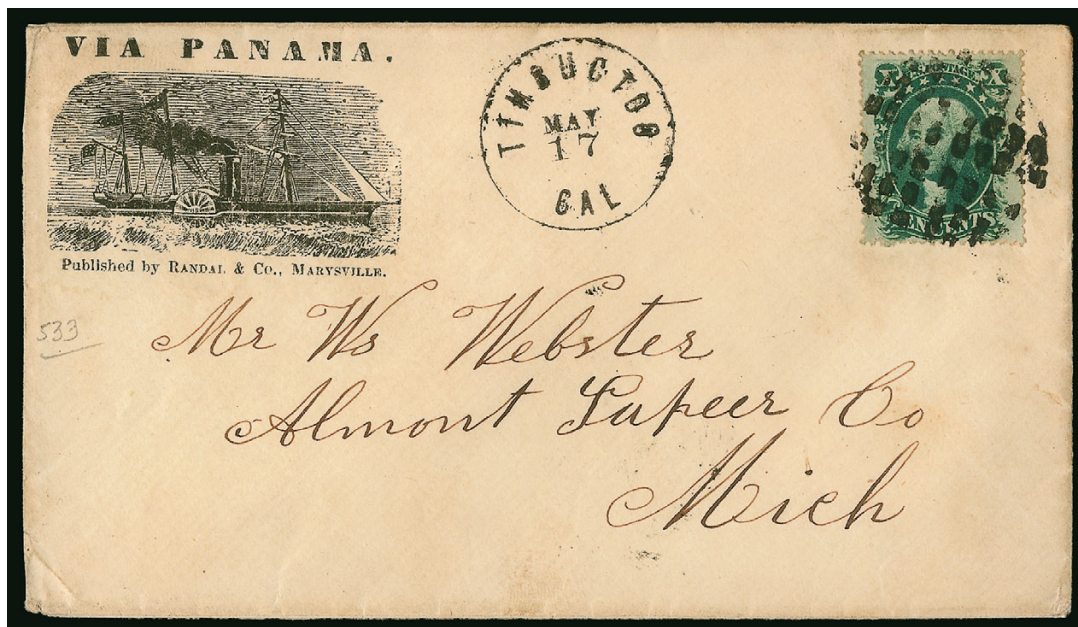 VIA PANAMA.
Published by RANDAL & Co., MARYSVILLE.
TIMBUCTOO
MAY
17
CAL
X U.S. POSTAGE X
TEN CENTS
533
Mr Ws Webster
Almont Lapeer Co
Mich